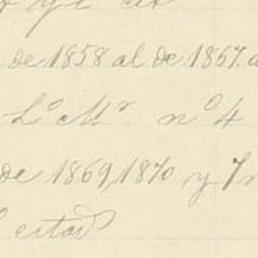 de 1858 al de 1867. a
Lº Mr nº 4
de 1869, 1870 y
citad